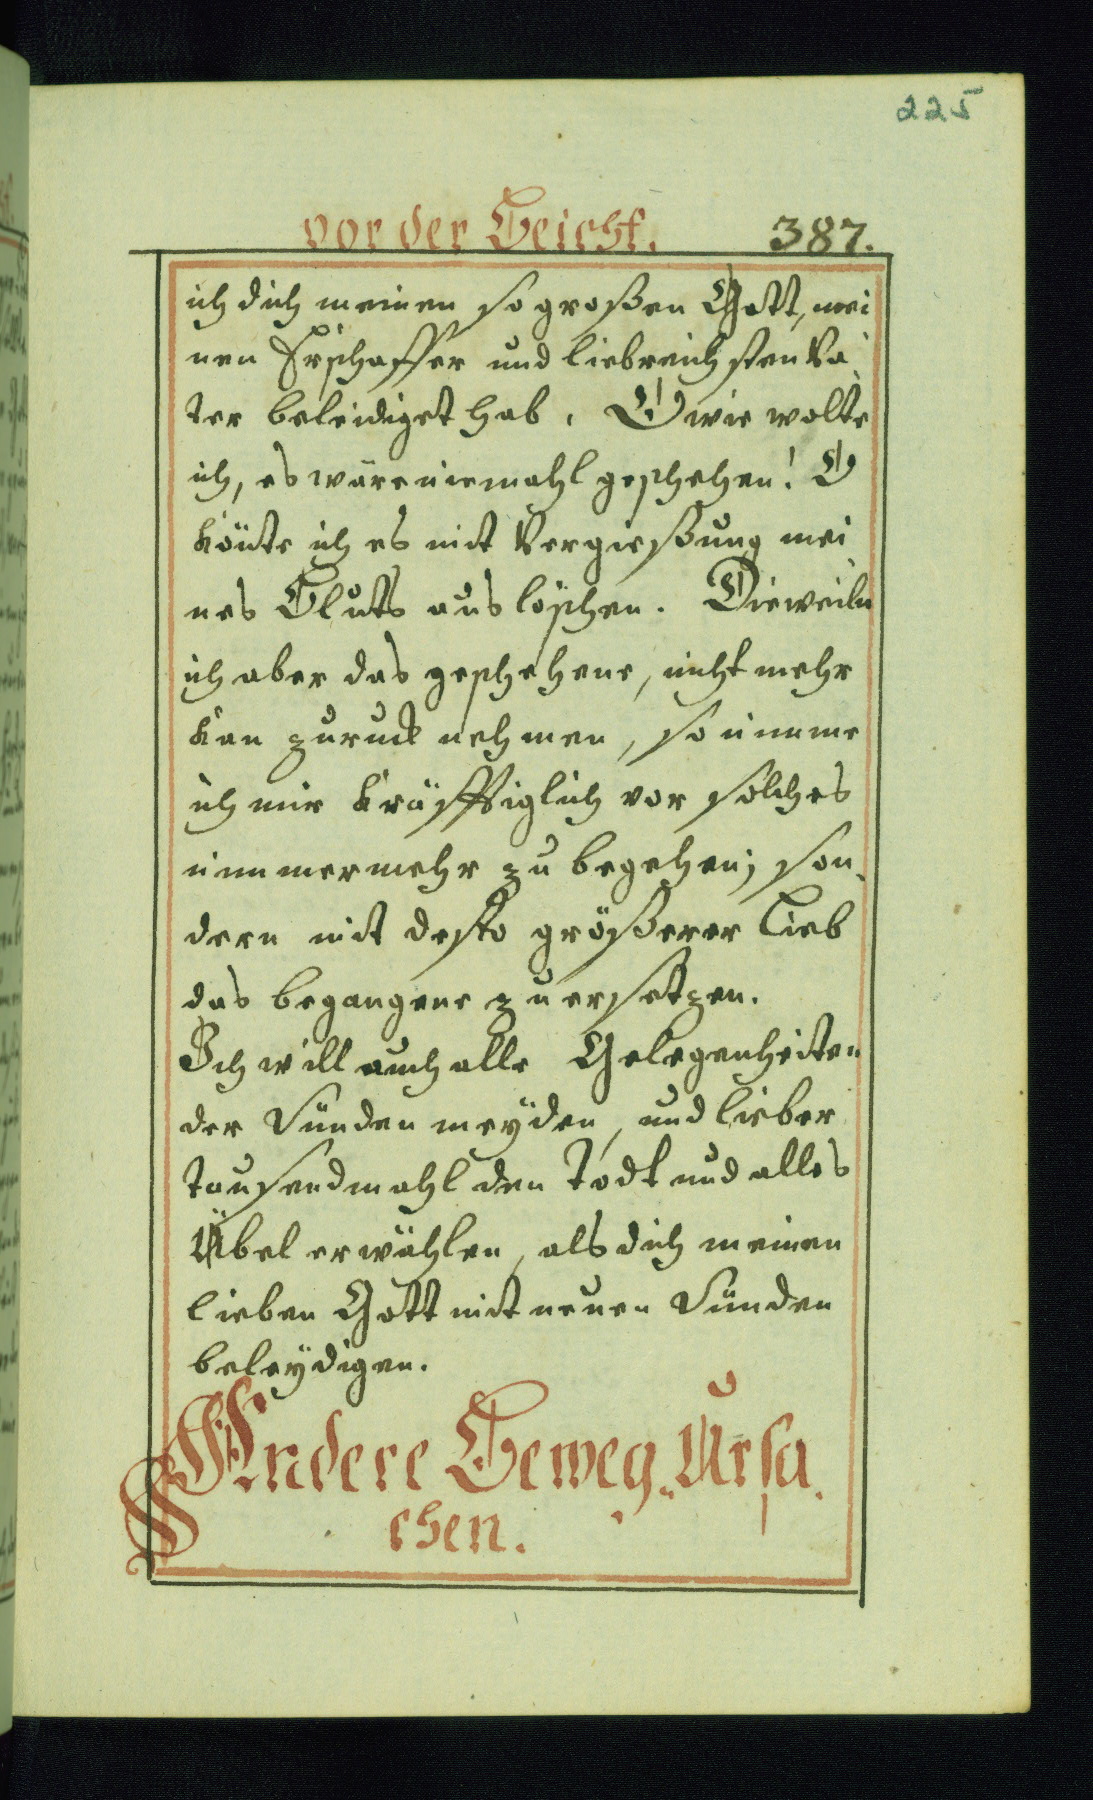 225
vor der Beicht. 387.
ich dich meinen so großen Gott, mei
nen Erschaffer und liebreichsten Va
ter beleidiget hab. O wie wolte
ich, es wäre niemahl geschehen! O
könte ich es mit Vergießung mei
nes Bluts auslöschen. Dieweiln
ich aber das geschehene, nicht mehr
kan zuruck nehmen, so nimme
ich mir kräfftiglich vor solches
nimmermehr zu begehen; son
dern mit desto größerer Lieb
das begangene zu ersetzen.
Ich will auch alle Gelegenheiten
der Sünden meÿden, und lieber
tausendmahl den Todt und alles
Übel erwählen, als dich meinen
lieben Gott mit neuen Sünden
beleÿdigen.
Andere Beweg-Ursa
chen.